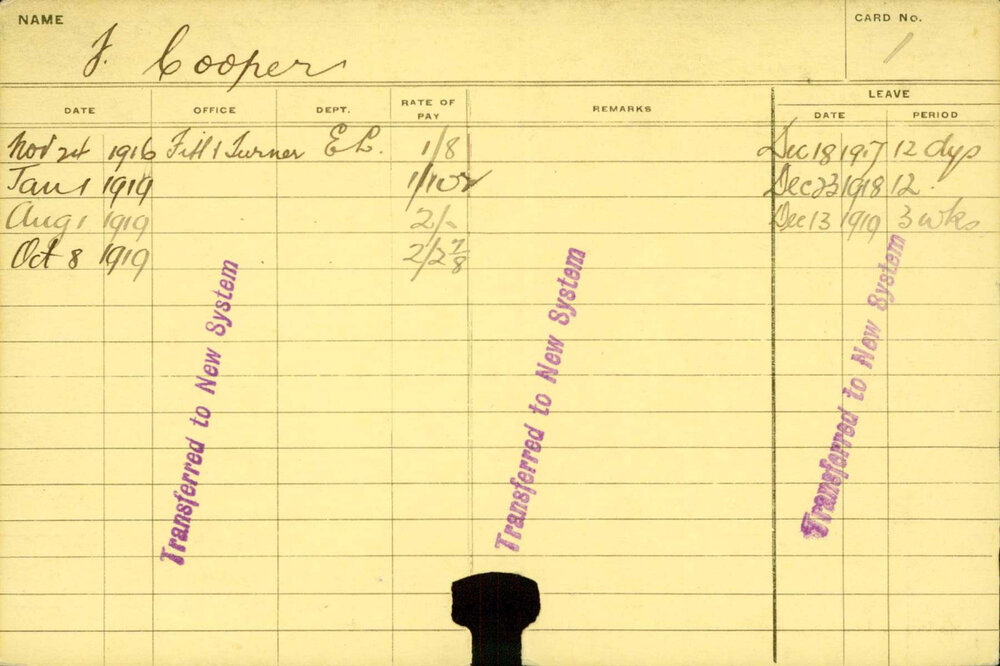 NAME
CARD No.
J. Cooper
1
LEAVE
DATE OFFICE DEPT. RATE OF PAY REMARKS DATE PERIOD
Nov 24 1916 Fitt & Turner E L. 1/8 Dec 18 1917 12 dys
Jan 1 1919 1/10½ Dec 23 1918 12.
Aug 1 1919 2/- Dec 13 1919 3 wks
Oct 8 1919 2/2 7/8
Transferred to New System
Transferred to New System
Transferred to New System